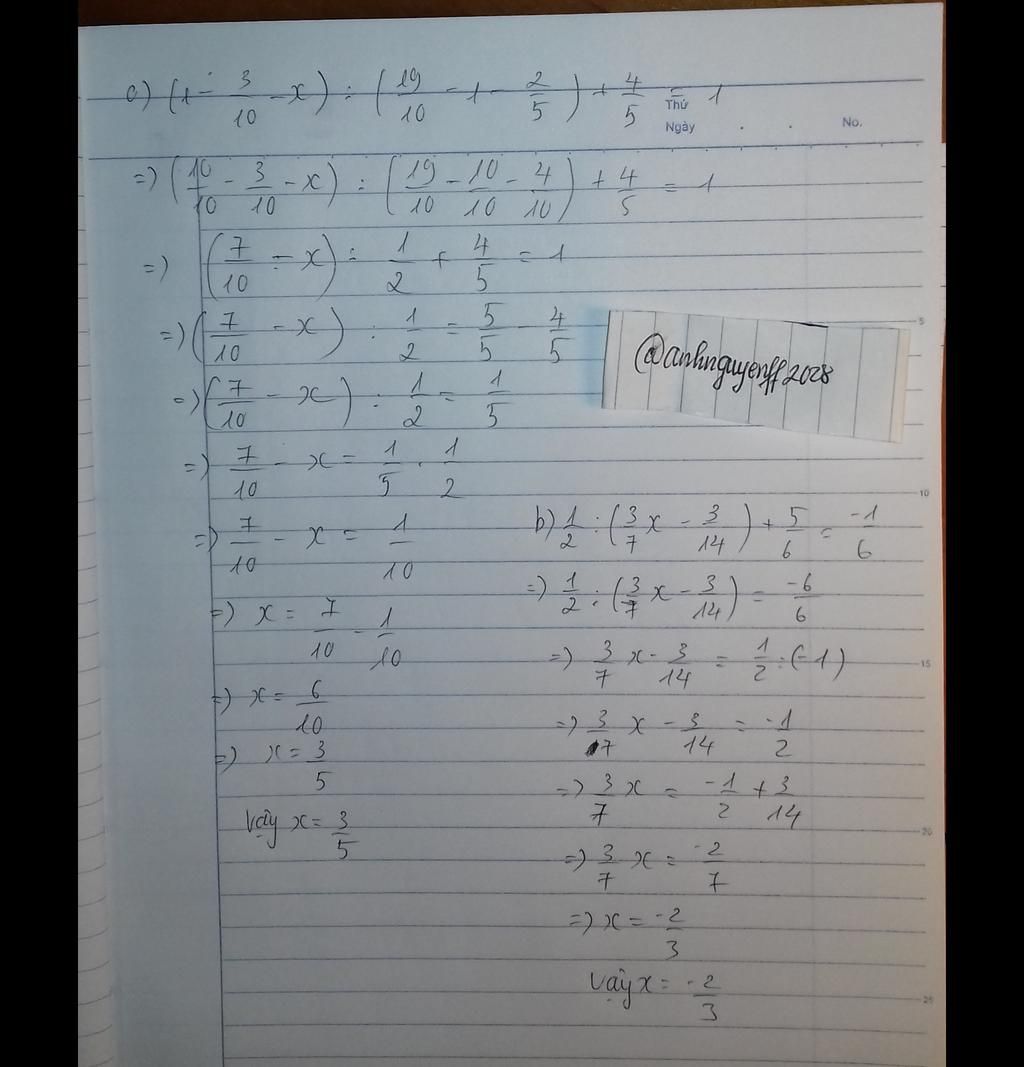 a) (1 - 3/10 - x) : (19/10 - 1 - 2/5) + 4/5 = 1
Thứ
Ngày . . No.
=) (10/10 - 3/10 - x) : (19/10 - 10/10 - 4/10) + 4/5 = 1
=) (7/10 - x) : 1/2 + 4/5 = 1
=) (7/10 - x) : 1/2 = 5/5 - 4/5
5
@anhnguyenff2028
=) (7/10 - x) : 1/2 = 1/5
=) 7/10 - x = 1/5 . 1/2
10
=) 7/10 - x = 1/10
=) x = 7/10 - 1/10
=) x = 6/10
=) x = 3/5
Vậy x = 3/5
b) 1/2 : (3/7 x - 3/14) + 5/6 = -1/6
=) 1/2 : (3/7 x - 3/14) = -6/6
=) 3/7 x - 3/14 = 1/2 : (-1)
15
=) 3/7 x - 3/14 = -1/2
=) 3/7 x = -1/2 + 3/14
20
=) 3/7 x = -2/7
=) x = -2/3
Vậy x = -2/3
25